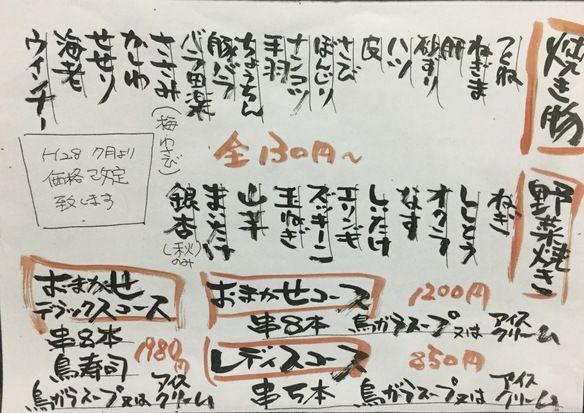 焼き物
つくね
ねぎま
肝
砂ずり
ハツ
皮
さび
ぼんじり
ナンコツ
手羽
ちょうちん
豚バラ
バラ田楽
ささみ
(梅 わさび)
かしわ
せせり
海老
ウインナー
全130円～
H28 7月より
価格改定
致します
野菜焼き
ねぎ
ししとう
オクラ
なす
しいたけ
エリンギ
ズッキーニ
玉ねぎ
山芋
まいたけ
銀杏
(秋のみ)
おまかせコース 1200円
串8本 鳥がらスープ又はアイスクリーム
レディスコース 850円
串5本 鳥がらスープ又はアイスクリーム
おまかせ
デラックスコース
串8本 1980円
鳥寿司
鳥がらスープ又はアイスクリーム